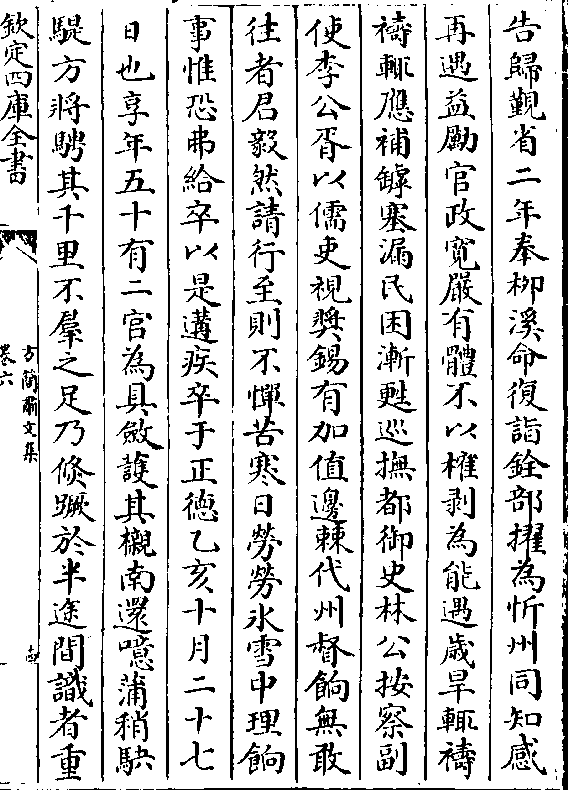 告歸覲省二年奉柳溪命復詣銓部擢為忻州同知感
再遇益勵官政寛嚴有體不以榷剥為能遇嵗旱輒禱
禱輒應補罅塞漏民困漸甦巡撫都御史林公按察副
使李公胥以儒吏視奬錫有加值邊棘代州督餉無敢
往者君毅然請行至則不憚苦寒日勞勞氷雪中理餉
事惟恐弗給卒以是遘疾卒于正徳乙亥十月二十七
日也享年五十有二官為具斂護其櫬南還噫蒲稍駃
騠方將騁其千里不羣之足乃倐蹶於半途間識者重
欽定四庫全書
方簡肅文集
卷六